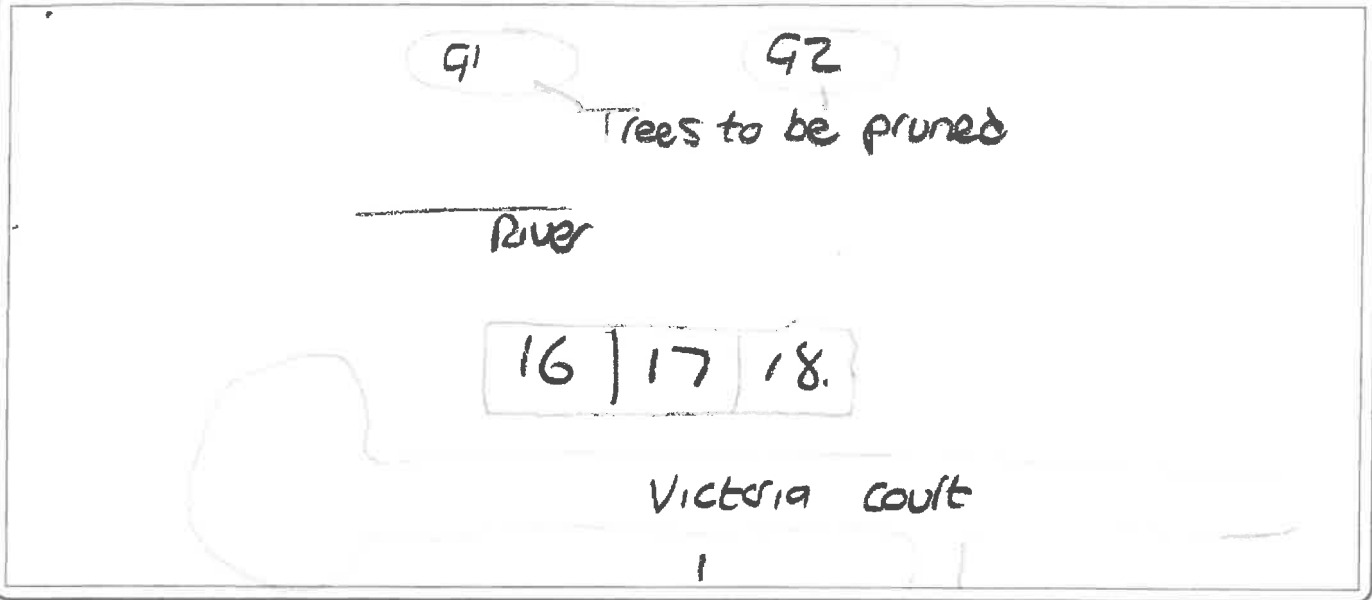 G1 G2
Trees to be pruned
River
16 17 18.
Victoria court
1